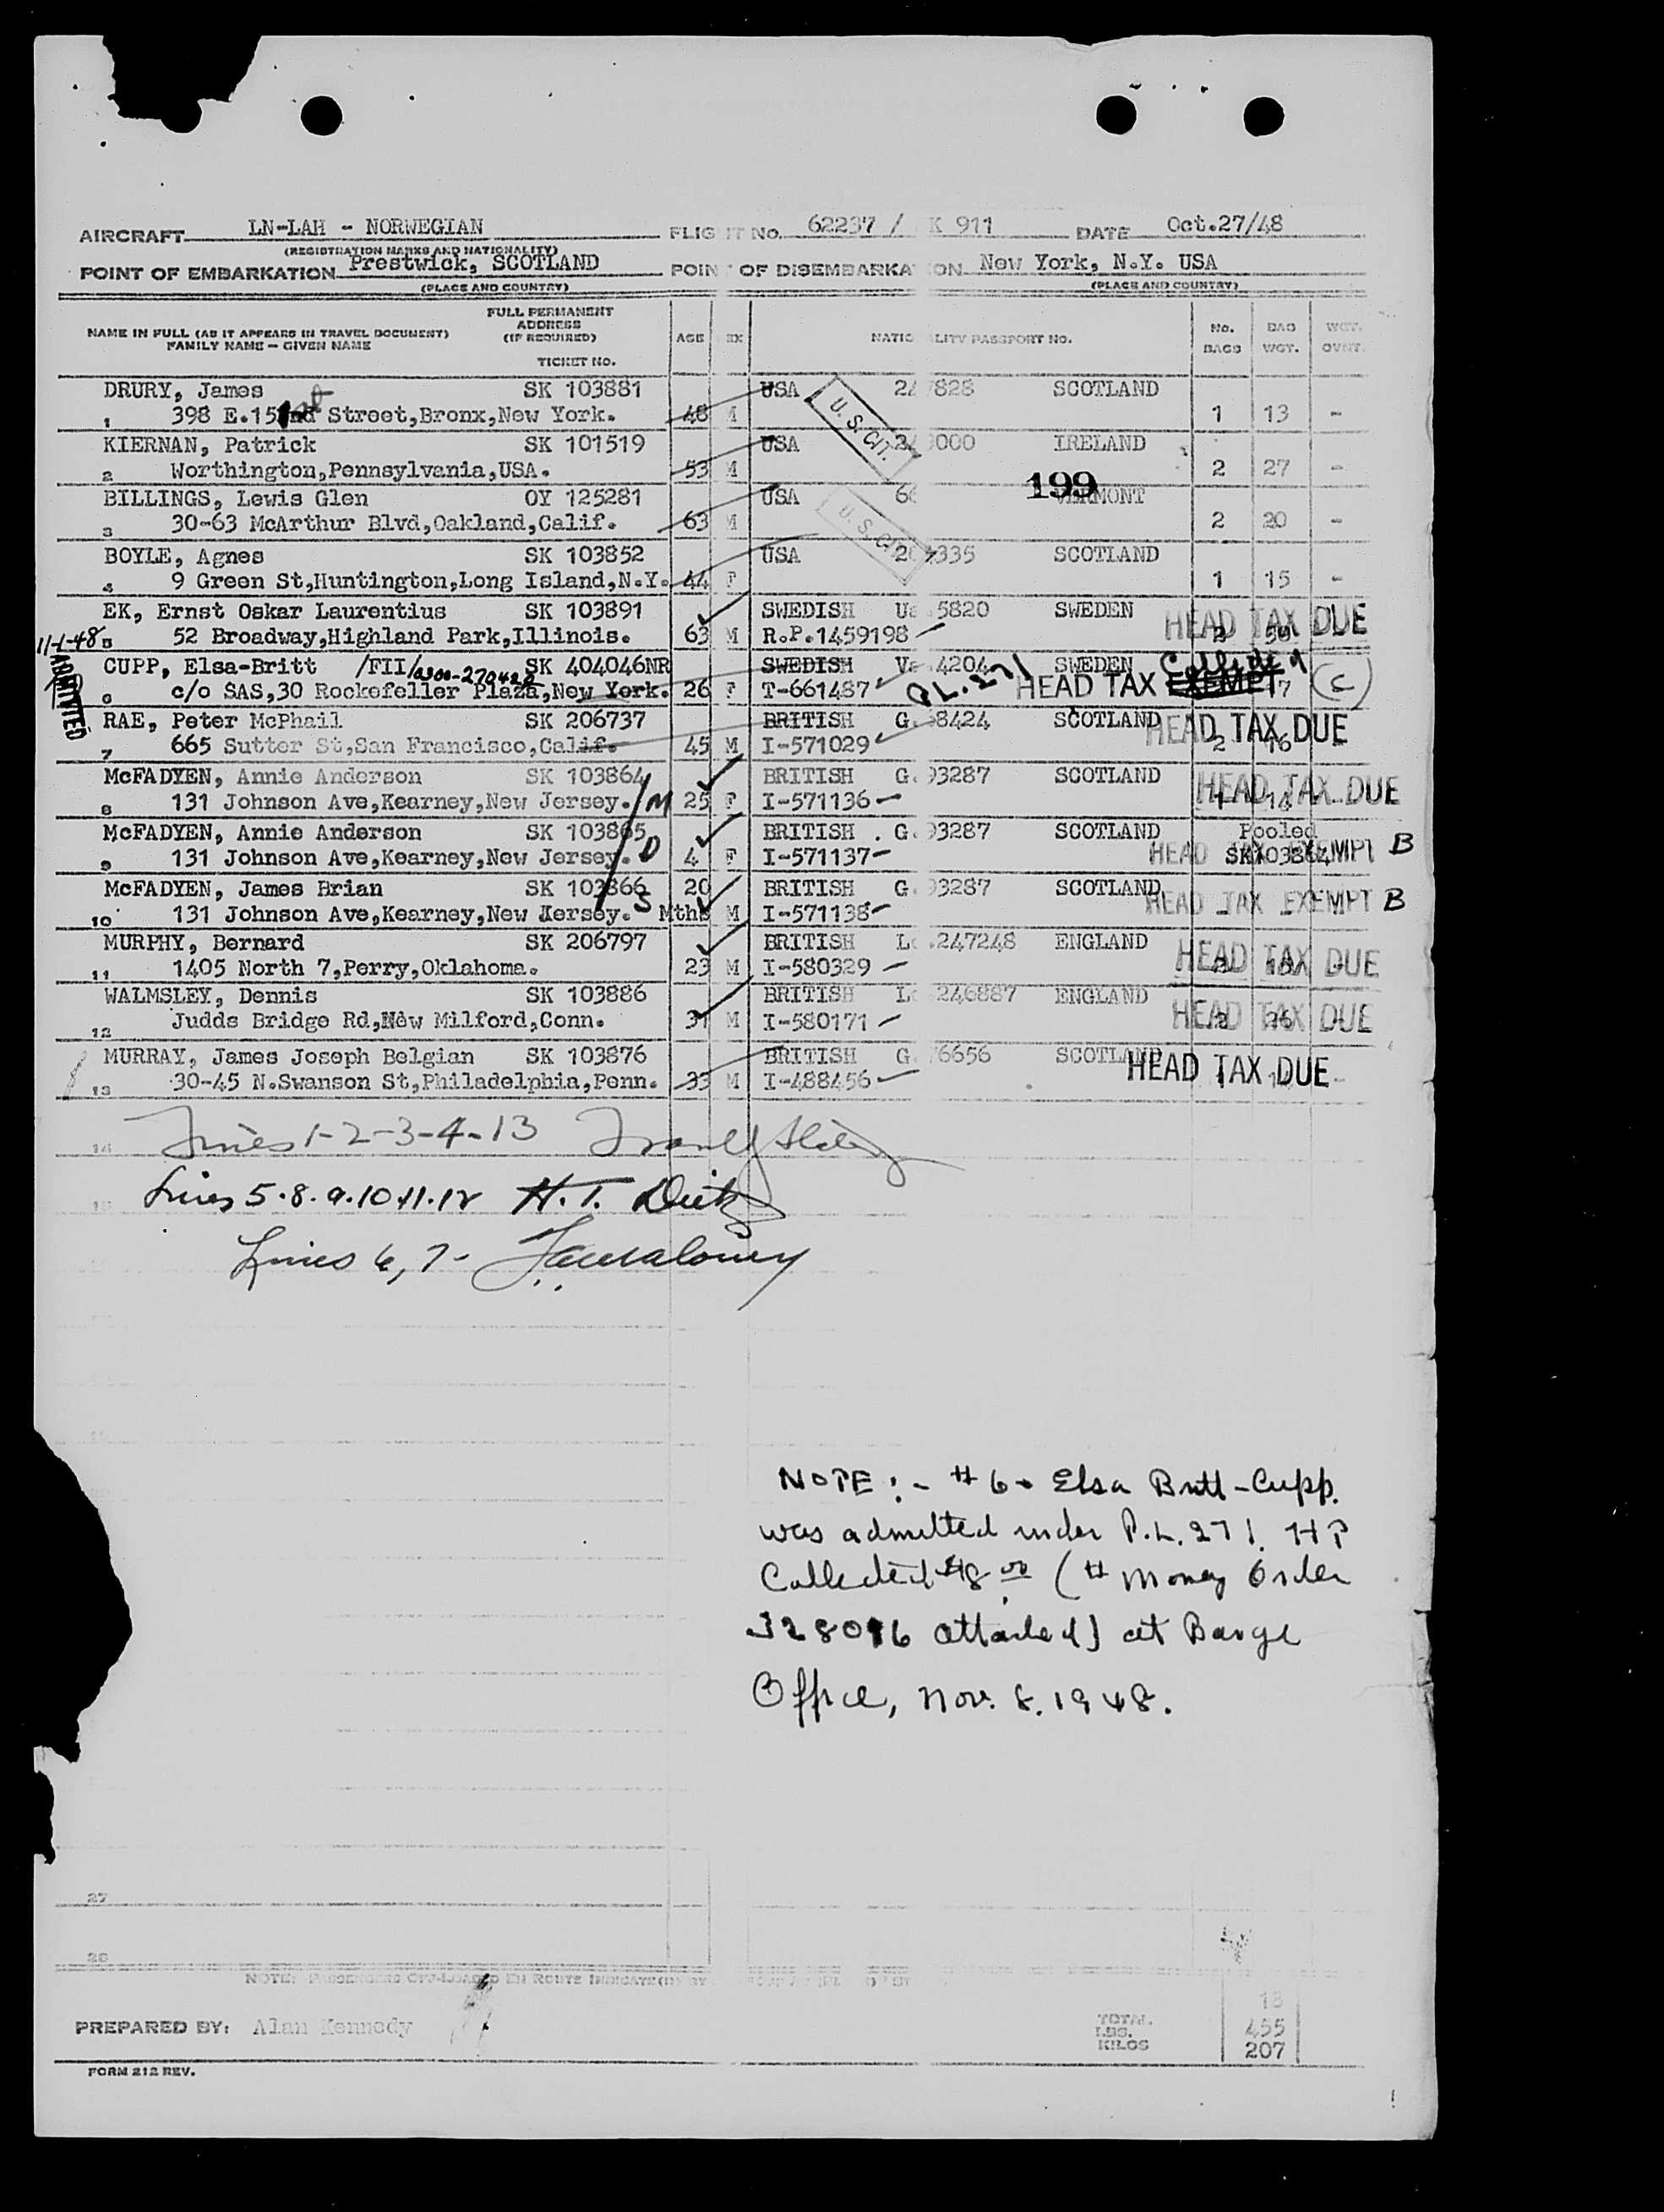 AIRCRAFT LN-LAH - NORWEGIAN FLIGHT No. 62237 / K 911 DATE Oct.27/48
(REGISTRATION MARKS AND NATIONALITY)
POINT OF EMBARKATION Prestwick, SCOTLAND POINT OF DISEMBARKATION New York, N.Y. USA
(PLACE AND COUNTRY) (PLACE AND COUNTRY)
NAME IN FULL (AS IT APPEARS IN TRAVEL DOCUMENT) FAMILY NAME - GIVEN NAME FULL PERMANENT ADDRESS (IF REQUIRED) TICKET NO. AGE EX NATIONALITY PASSPORT NO. No. BAGS BAG WGT. WGT. OVNT.
DRURY, James SK 103881 USA 24 7828 SCOTLAND
1 398 E.151st Street,Bronx,New York. 48 M U.S. CIT. 1 13 -
KIERNAN, Patrick SK 101519 USA 0000 IRELAND
2 Worthington,Pennsylvania,USA. 53 M 2 27 -
199
BILLINGS, Lewis Glen OY 125281 USA 6 VERMONT
3 30-63 McArthur Blvd,Oakland,Calif. 63 M U.S. CIT. 2 20 -
BOYLE, Agnes SK 103852 USA 335 SCOTLAND
4 9 Green St,Huntington,Long Island,N.Y. 44 F 1 15 -
EK, Ernst Oskar Laurentius SK 103891 SWEDISH U 5820 SWEDEN HEAD TAX DUE
11-1-48 5 52 Broadway,Highland Park,Illinois. 63 M R.P.1459198
ADMITTED
CUPP, Elsa-Britt /FII/0300-270428 SK 404046NR SWEDISH V 4204 SWEDEN Collected
6 c/o SAS,30 Rockefeller Plaza,New York. 26 F T-661487 PL.271 HEAD TAX EXEMPT 7 C
RAE, Peter McPhail SK 206737 BRITISH G. 8424 SCOTLAND HEAD TAX DUE
7 665 Sutter St,San Francisco,Calif. 45 M I-571029 2
McFADYEN, Annie Anderson SK 103864 BRITISH G. 93287 SCOTLAND HEAD TAX DUE
8 131 Johnson Ave,Kearney,New Jersey. M 25 F I-571136
McFADYEN, Annie Anderson SK 103865 BRITISH G. 93287 SCOTLAND Pooled
9 131 Johnson Ave,Kearney,New Jersey. D 4 F I-571137 HEAD TAX EXEMPT SK103864 B
McFADYEN, James Brian SK 103866 20 BRITISH G 93287 SCOTLAND
10 131 Johnson Ave,Kearney,New Jersey. S Mths M I-571138 HEAD TAX EXEMPT B
MURPHY, Bernard SK 206797 BRITISH L .247248 ENGLAND HEAD TAX DUE
11 1405 North 7,Perry,Oklahoma. 23 M I-580329
WALMSLEY, Dennis SK 103886 BRITISH L 246887 ENGLAND HEAD TAX DUE
12 Judds Bridge Rd,New Milford,Conn. 31 M I-580171
MURRAY, James Joseph Belgian SK 103876 BRITISH G. 76656 SCOTLAND HEAD TAX DUE
13 30-45 N.Swanson St,Philadelphia,Penn. 33 M I-488456 1
14 Lines 1-2-3-4-13
15 Lines 5.8.9.10.11.12 H.T.
Lines 6, 7-
NOTE:- #6- Elsa Britt-Cupp.
was admitted under P.L.271. HT
Collected $8.00 (# Money Order
328096 attached) at Barge
Office, Nov. 8. 1948.
27
28
NOTE: PASSENGERS OFF-LOADED EN ROUTE INDICATE
18
PREPARED BY: Alan Kennedy TOTAL LBS. 455
KILOS 207
FORM 212 REV.